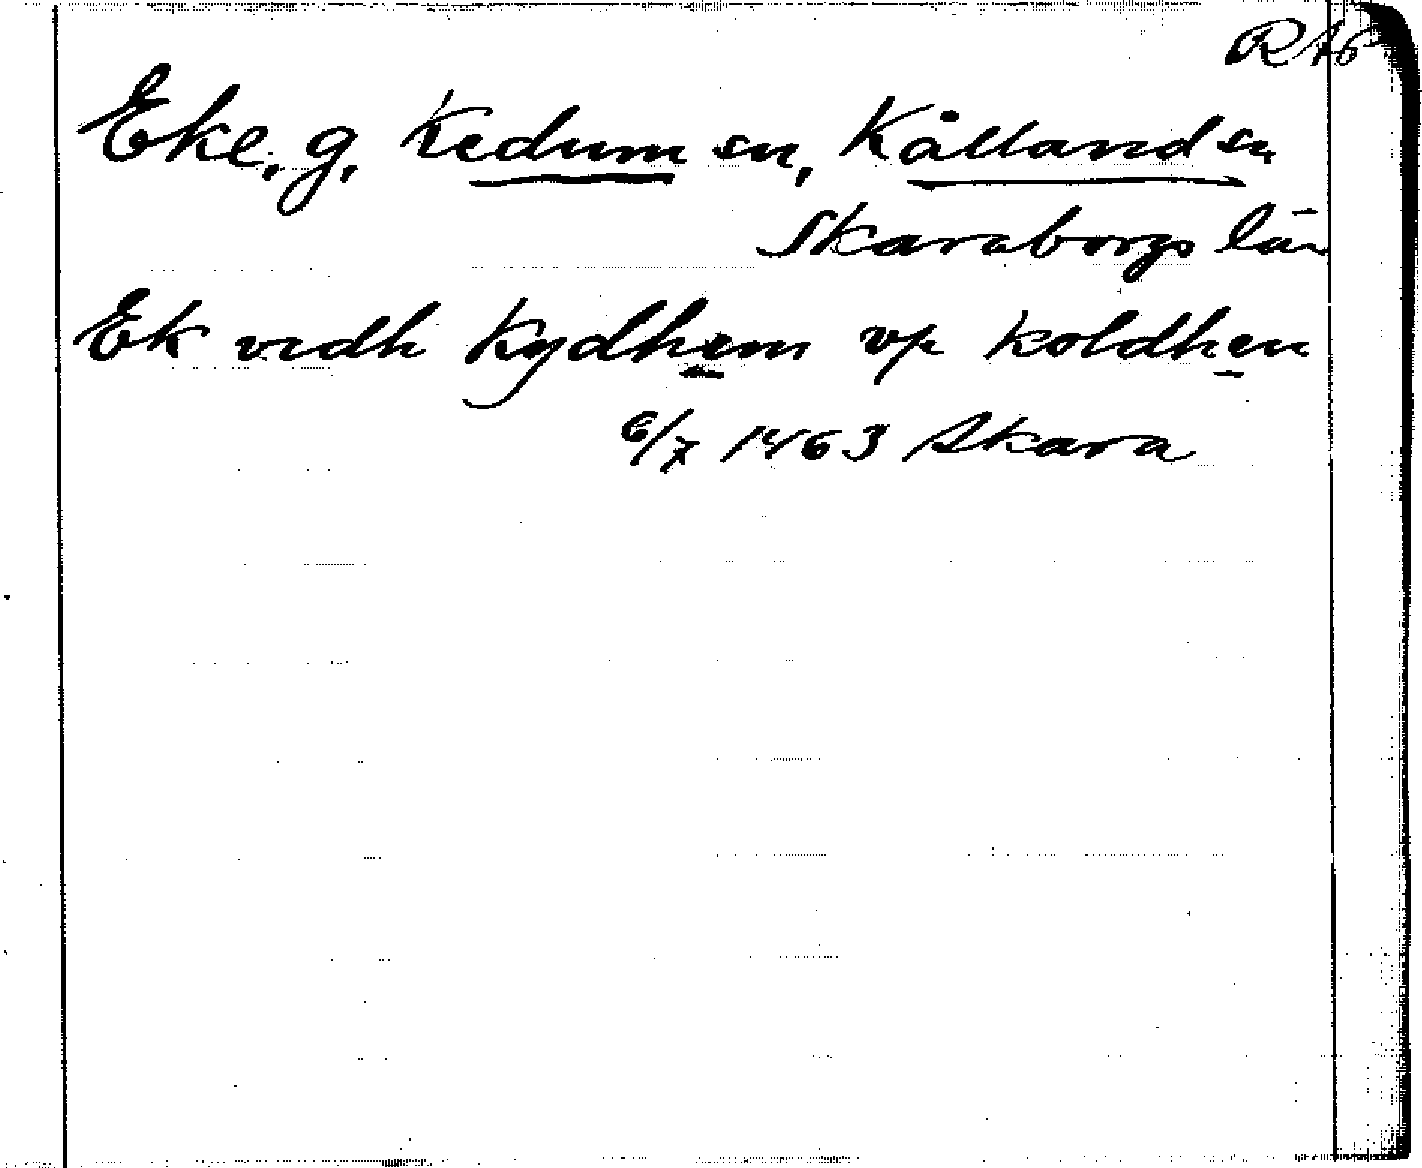 RAp
Eke, g, Kedum sn, Kålland sn
Skaraborgs län
Ek vidh Kydhem vp koldhen
6/7 1463 Skara